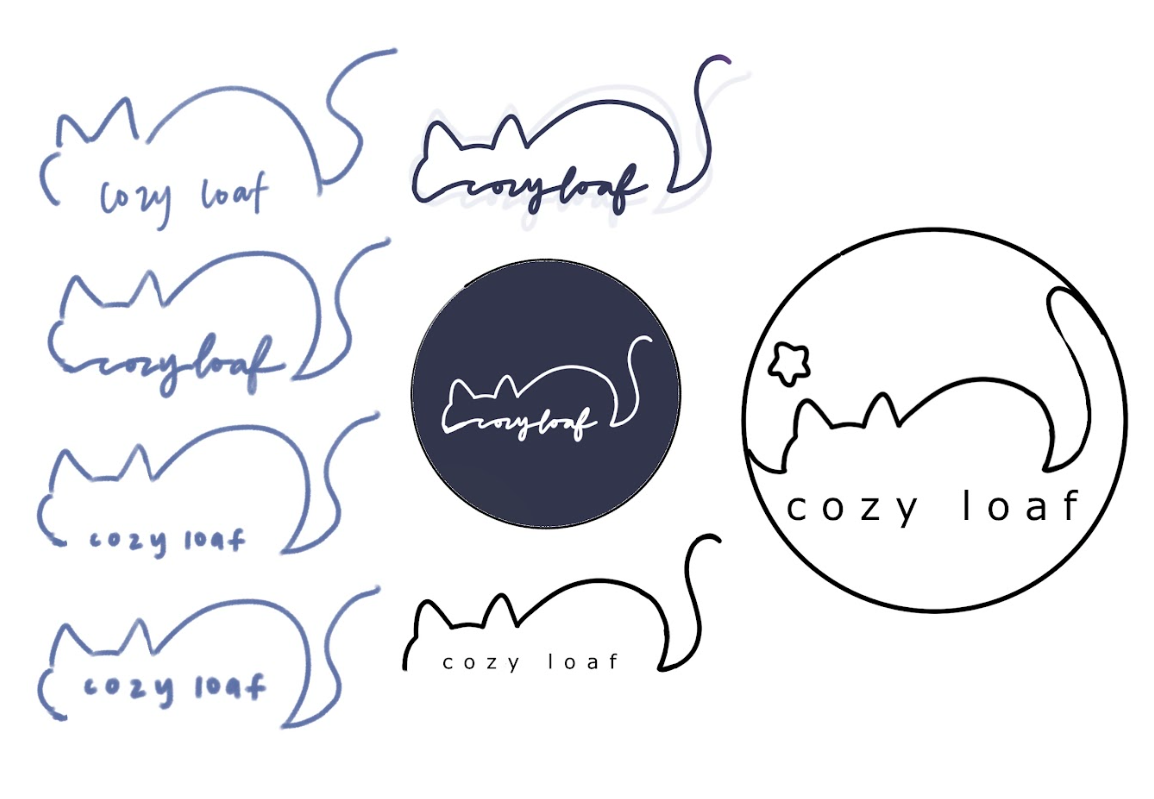 cozy loaf
cozy loaf
cozy loaf
cozy loaf
cozy loaf
cozy loaf
cozy loaf
cozy loaf